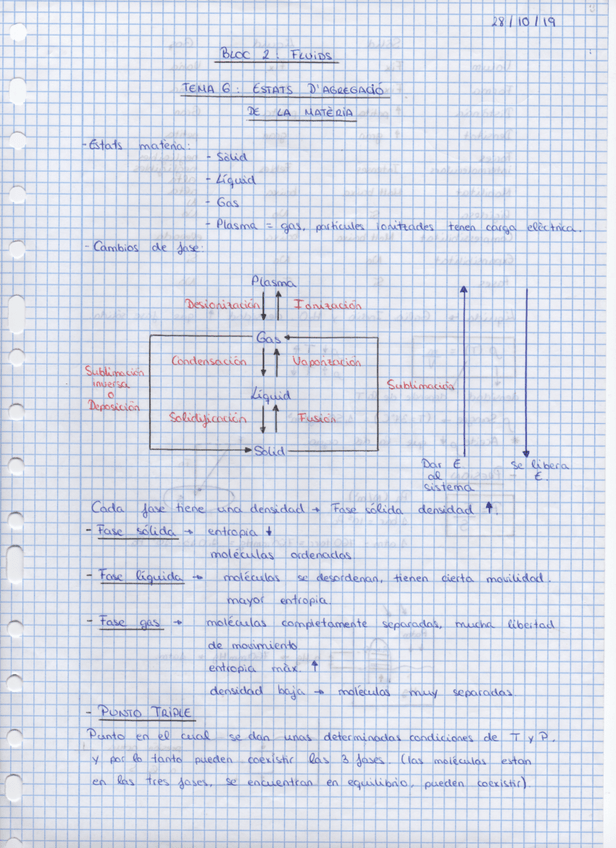 28/10/19
BLOC 2: FLUIDS
TEMA 6: ESTATS D'AGREGACIÓ
DE LA MATÈRIA
- Estats matèria:
- Sòlid
- Líquid
- Gas
- Plasma = gas, partícules ionitzades tenen carga elèctrica.
- Cambios de fase:
Plasma
Desionización Ionización
Gas
Condensación Vaporización
Sublimación
inversa
o
Deposición
Sublimación
Líquid
Solidificación Fusión
Sòlid
Dar E
al
sistema
Se libera
E
Cada fase tiene una densidad → Fase sólida densidad ↑.
- Fase sólida → entropia ↓
moléculas ordenadas
- Fase líquida → moléculas se desordenan, tienen cierta movilidad.
mayor entropia
- Fase gas → moléculas completamente separadas, mucha libertad
de movimiento
entropia máx. ↑
densidad baja → moléculas muy separadas
- PUNTO TRIPLE
Punto en el cual se dan unas determinadas condiciones de T y P.
y por lo tanto pueden coexistir las 3 fases. (las moléculas estan
en las tres fases, se encuentran en equilibrio, pueden coexistir).